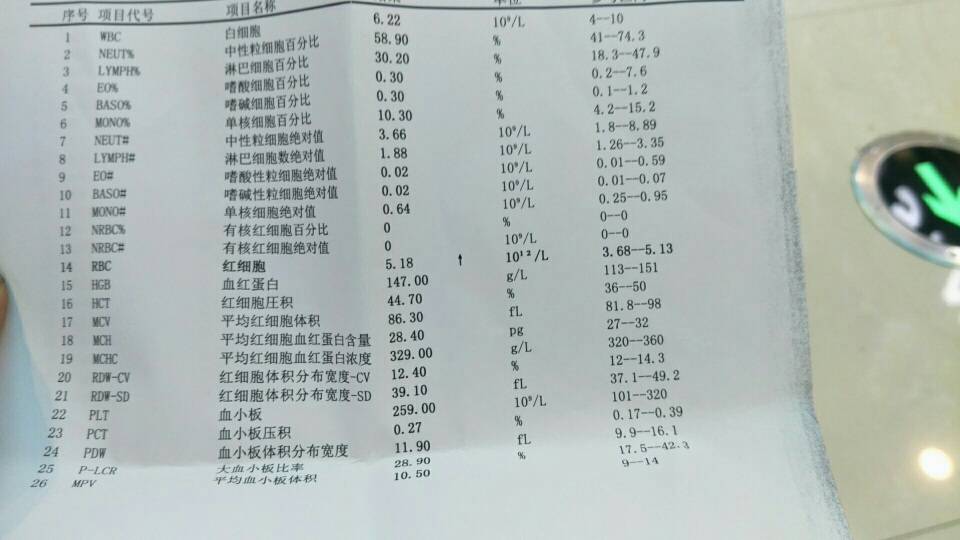 序号 项目代号 项目名称
1 WBC 白细胞 6.22 10⁹/L 4--10
2 NEUT% 中性粒细胞百分比 58.90 % 41--74.3
3 LYMPH% 淋巴细胞百分比 30.20 % 18.3--47.9
4 EO% 嗜酸细胞百分比 0.30 % 0.2--7.6
5 BASO% 嗜碱细胞百分比 0.30 % 0.1--1.2
6 MONO% 单核细胞百分比 10.30 % 4.2--15.2
7 NEUT# 中性粒细胞绝对值 3.66 10⁹/L 1.8--8.89
8 LYMPH# 淋巴细胞数绝对值 1.88 10⁹/L 1.26--3.35
9 EO# 嗜酸性粒细胞绝对值 0.02 10⁹/L 0.01--0.59
10 BASO# 嗜碱性粒细胞绝对值 0.02 10⁹/L 0.01--0.07
11 MONO# 单核细胞绝对值 0.64 10⁹/L 0.25--0.95
12 NRBC% 有核红细胞百分比 0 % 0--0
13 NRBC# 有核红细胞绝对值 0 10⁹/L 0--0
14 RBC 红细胞 5.18 ↑ 10¹²/L 3.68--5.13
15 HGB 血红蛋白 147.00 g/L 113--151
16 HCT 红细胞压积 44.70 % 36--50
17 MCV 平均红细胞体积 86.30 fL 81.8--98
18 MCH 平均红细胞血红蛋白含量 28.40 pg 27--32
19 MCHC 平均红细胞血红蛋白浓度 329.00 g/L 320--360
20 RDW-CV 红细胞体积分布宽度-CV 12.40 % 12--14.3
21 RDW-SD 红细胞体积分布宽度-SD 39.10 fL 37.1--49.2
22 PLT 血小板 259.00 10⁹/L 101--320
23 PCT 血小板压积 0.27 % 0.17--0.39
24 PDW 血小板体积分布宽度 11.90 fL 9.9--16.1
25 P-LCR 大血小板比率 28.90 % 17.5--42.3
26 MPV 平均血小板体积 10.50 9--14